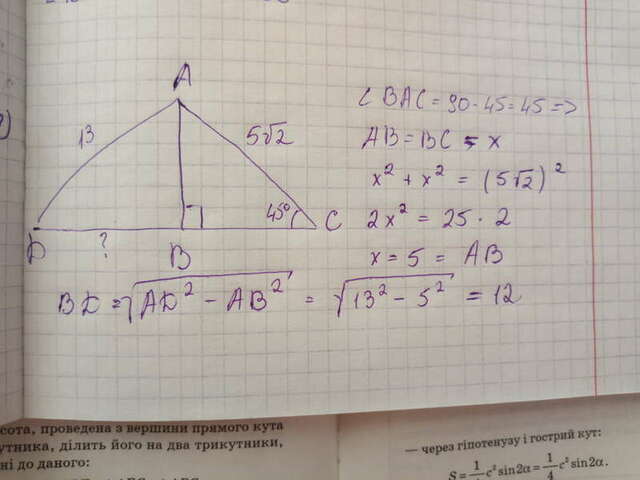 A
13
5√2
45°
C
D
?
B
∠ BAC = 90 - 45 = 45 =>
AB = BC = x
x² + x² = (5√2)²
2x² = 25 · 2
x = 5 = AB
BD = √AD² - AB² = √13² - 5² = 12
сота, проведена з вершини прямого кута
утника, ділить його на два трикутники,
ні до даного:
— через гіпотенузу і гострий кут:
S = 1/4 c² sin 2α = 1/4 c² sin 2α.